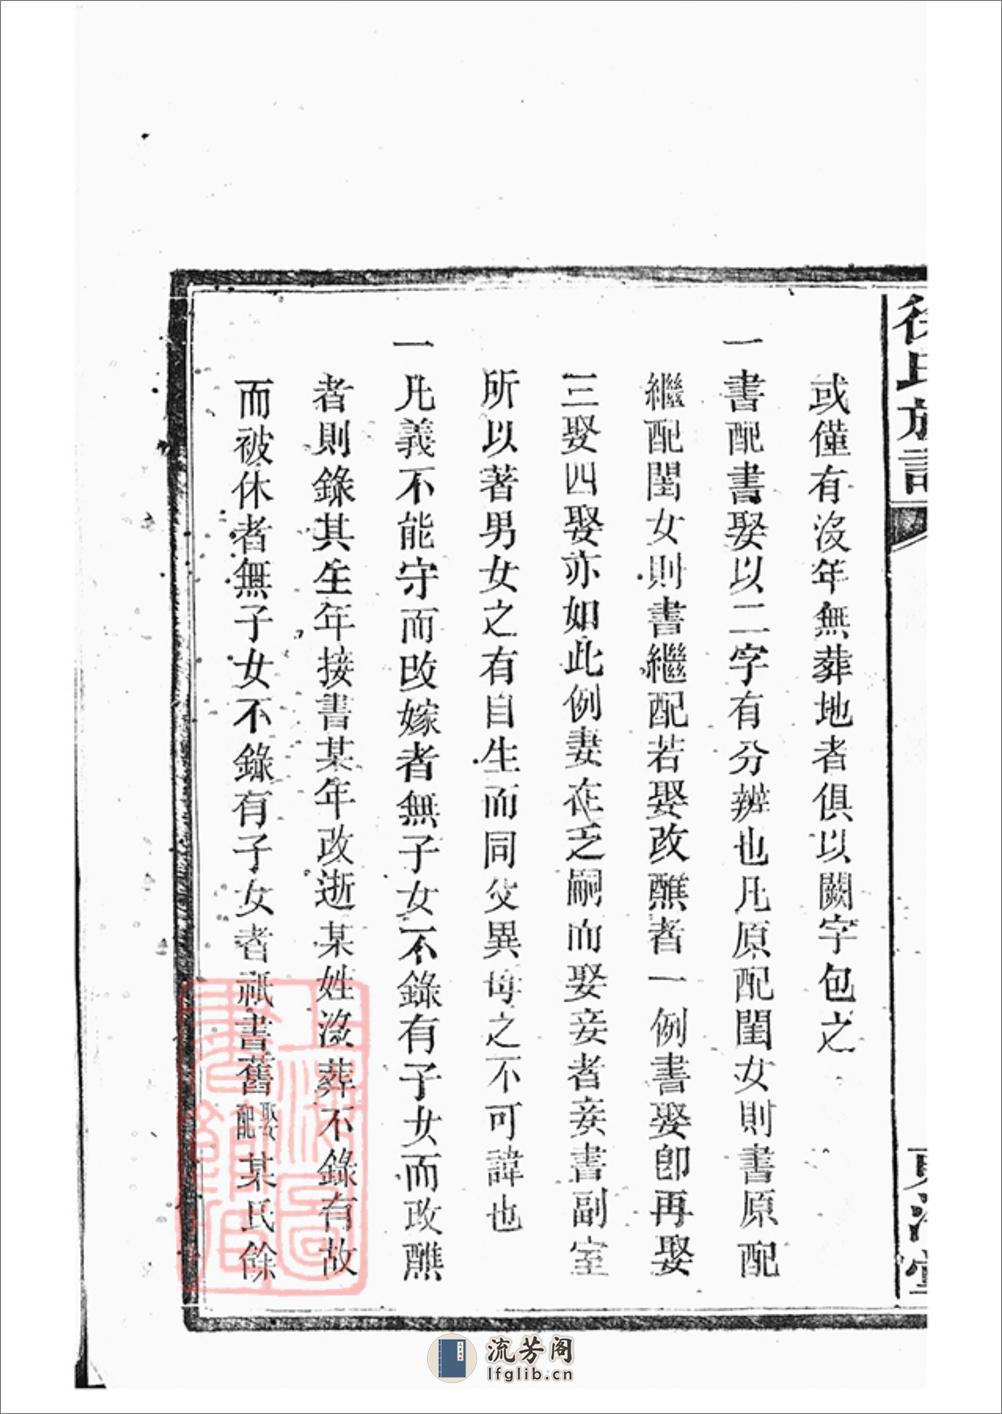 徐氏族譜
東海堂
或僅有沒年無葬地者俱以闕字包之
一書配書娶以二字有分辨也凡原配閨女則書原配
繼配閨女則書繼配若娶改醮者一例書娶卽再娶
三娶四娶亦如此例妻在乏嗣而娶妾者妾書副室
所以著男女之有自生而同父異母之不可諱也
一凡義不能守而改嫁者無子女不錄有子女而改醮
者則錄其生年接書某年改逝某姓沒葬不錄有故
而被休者無子女不錄有子女者祇書舊娶配某氏餘
上海圖書館藏
流芳阁
lfglib.cn